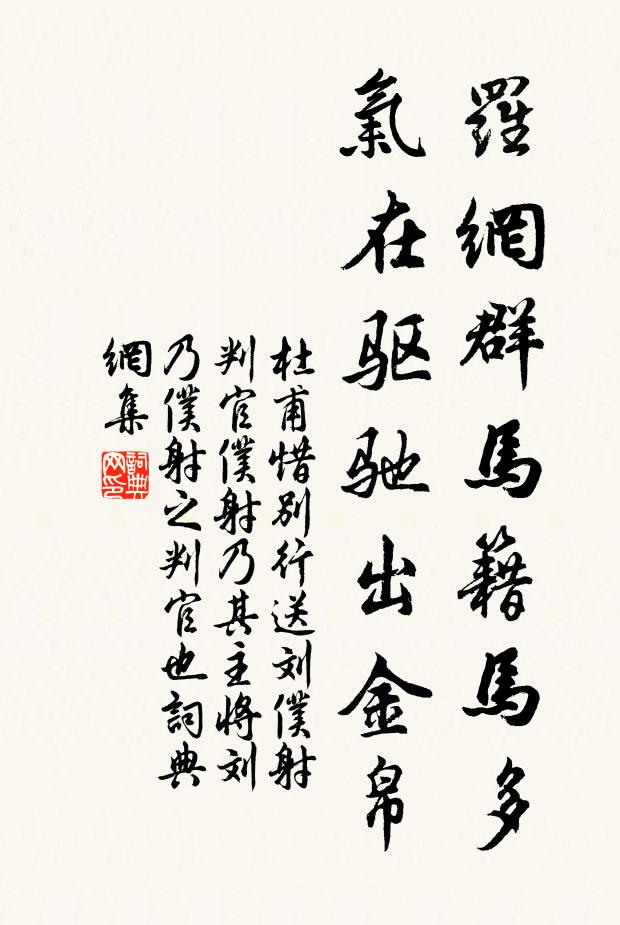 羅網群馬籍馬多
氣在驱驰出金帛
杜甫惜别行送刘僕射
判官僕射乃其主將刘
乃僕射之判官也詞典
網集
詞典网印